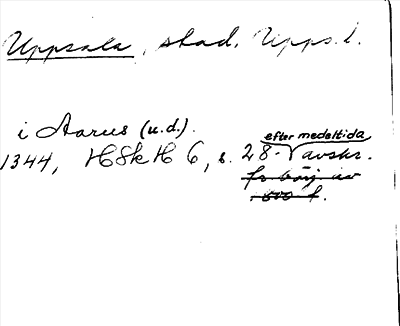 Uppsala, stad. Upps. l.
i Aarus (u.d.).
eftermedeltida
1344, HSkH 6, s. 28. avskr.
fr börj av
1500 t.